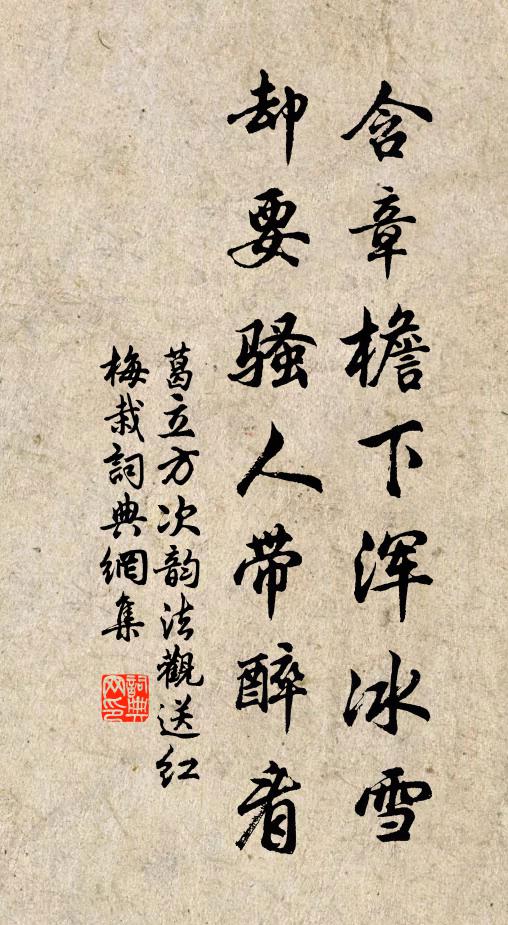 含章檐下浑冰雪
却要骚人带醉看
葛立方次韵法觀送红
梅栽詞典網集
詞典
网印